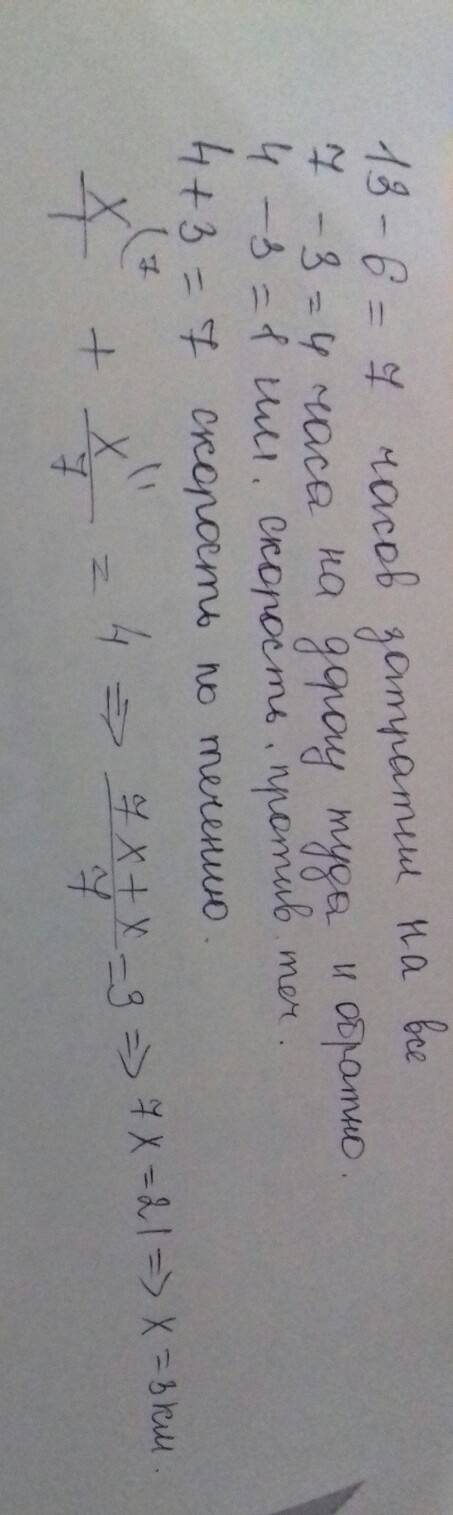 13 - 6 = 7 часов затратил на все
7 - 3 = 4 часа на дорогу туда и обратно.
4 - 3 = 1 скорость против теч.
4 + 3 = 7 скорость по течению.
X/1 (7 + X/7 (1 = 4 => 7X + X/7 = 3 => 7X = 21 => X = 3 км.